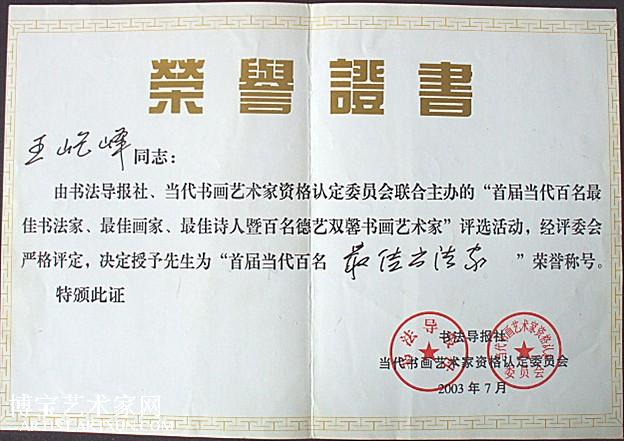 榮譽證書
王屹峰同志：
由书法导报社、当代书画艺术家资格认定委员会联合主办的“首届当代百名最
佳书法家、最佳画家、最佳诗人暨百名德艺双馨书画艺术家”评选活动，经评委会
严格评定，决定授予先生为“首届当代百名 最佳书法家 ”荣誉称号。
特颁此证
书法导报社
当代书画艺术家资格认定委员会
2003年7月
书法导报社
当代书画艺术家资格认定
委员会
博宝艺术家网
ARTIST.ARTXUN.COM